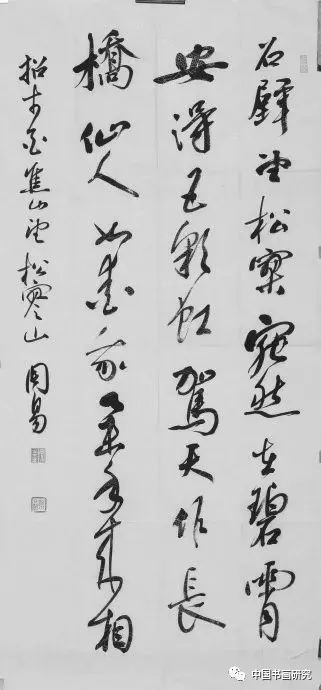 石壁望松寥宛然在碧霄
安得五彩虹駕天作長
橋仙人如愛我舉手來相
招李白焦山望松寥山 周易
中国书画研究